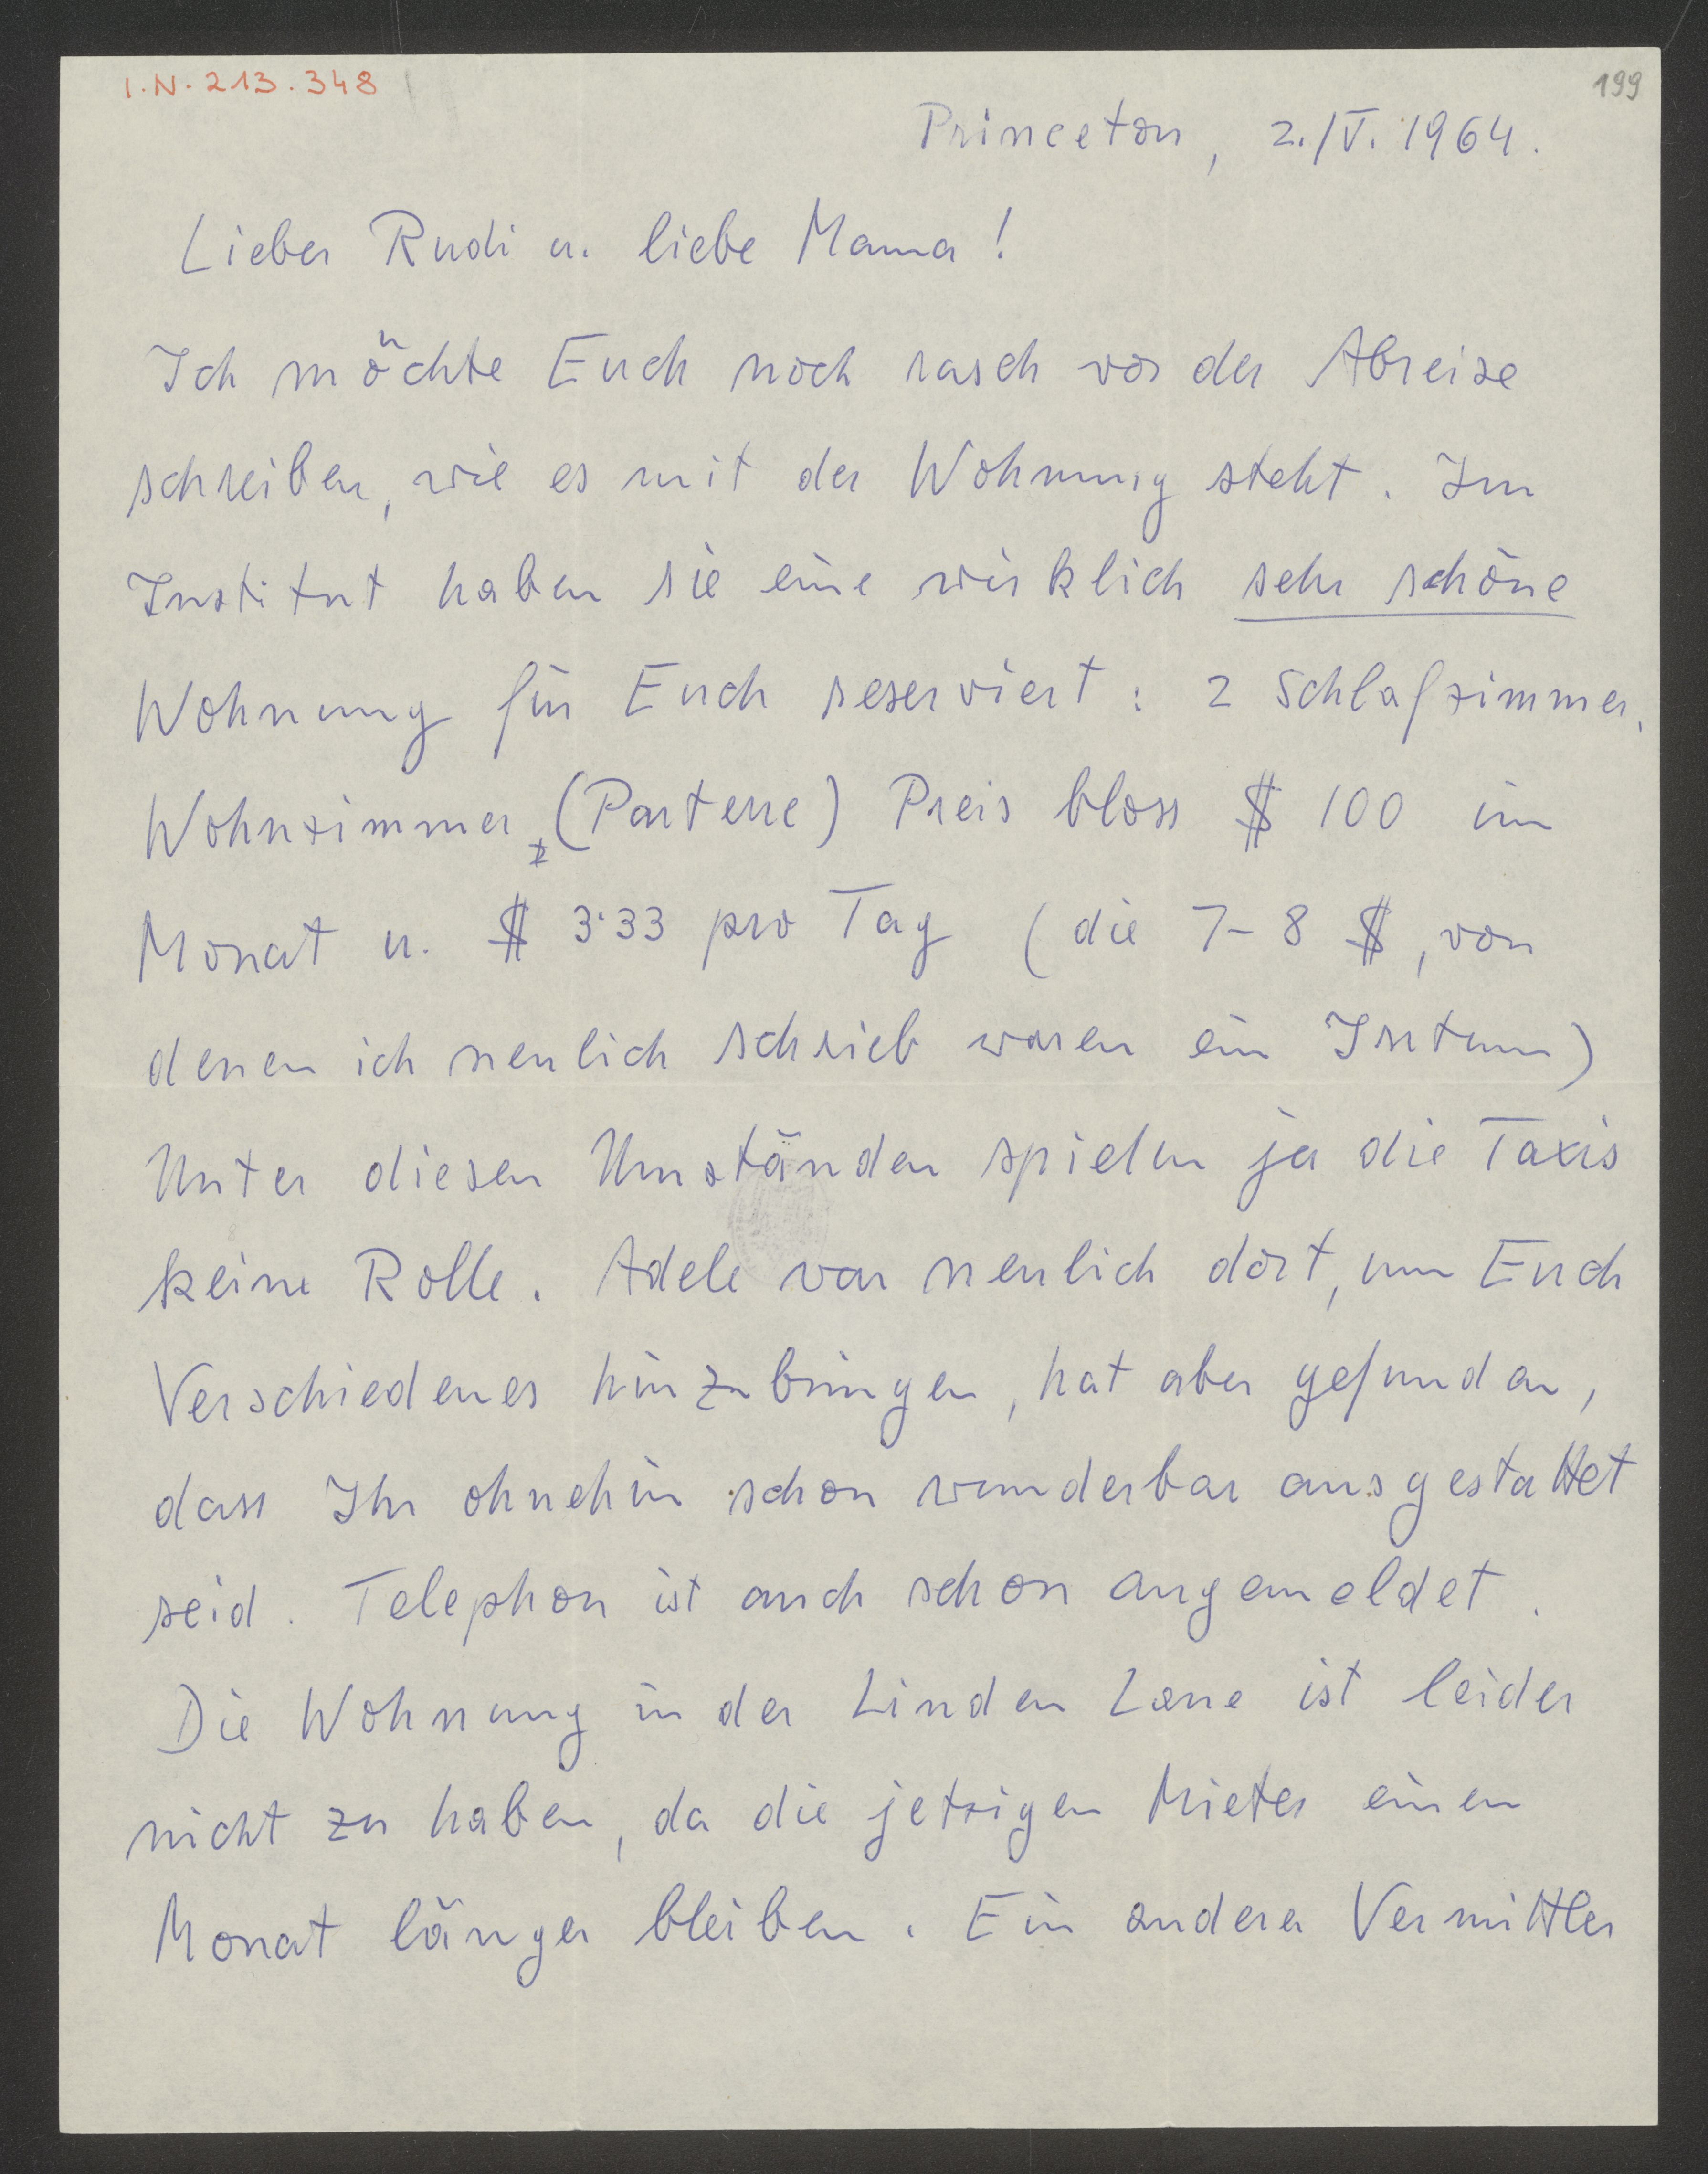 I.N. 213.348
199
Princeton, 2./V. 1964.
Lieber Rudi u. liebe Mama!
Ich möchte Euch noch rasch vor der Abreise
schreiben, wie es mit der Wohnung steht. Im
Institut haben sie eine wirklich sehr schöne
Wohnung für Euch reserviert: 2 Schlafzimmer,
Wohnzimmer, (Parterre) Preis bloss $ 100 im
Monat u. $ 3·33 pro Tag (die 7-8 $, von
denen ich neulich schrieb waren ein Irrtum)
Unter diesen Umständen spielen ja die Taxis
keine Rolle. Adele war neulich dort, um Euch
Verschiedenes hinzubringen, hat aber gefunden,
dass Ihr ohnehin schon wunderbar ausgestattet
seid. Telephon ist auch schon angemeldet.
Die Wohnung in der Linden Lane ist leider
nicht zu haben, da die jetzigen Mieter einen
Monat länger bleiben. Ein anderer Vermittler